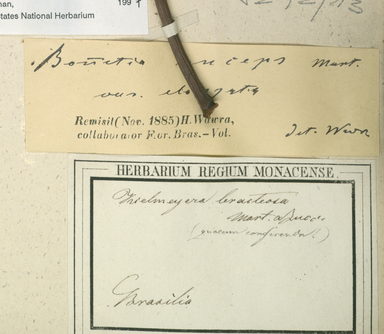 man, 199
States National Herbarium
Bonnetia anceps Mart.
var. elongata
Remisit (Nov. 1885) H. Wawra,
collaborator Flor. Bras.-Vol.
det. Wawra
HERBARIUM REGIUM MONACENSE.
Kielmeyera bracteosa
Mart. & Zucc.
(quacum conferenda!)
Brasilia